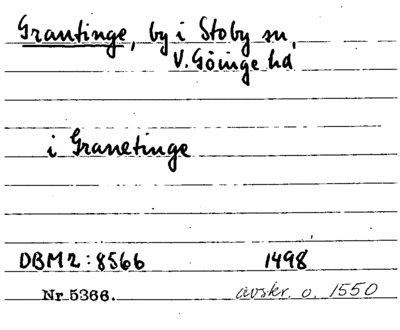 Grantinge, by i Stoby sn,
V. Göinge hd
i Granetinge
DBM 2: 8566 1498
Nr 5366. avskr. o. 1550